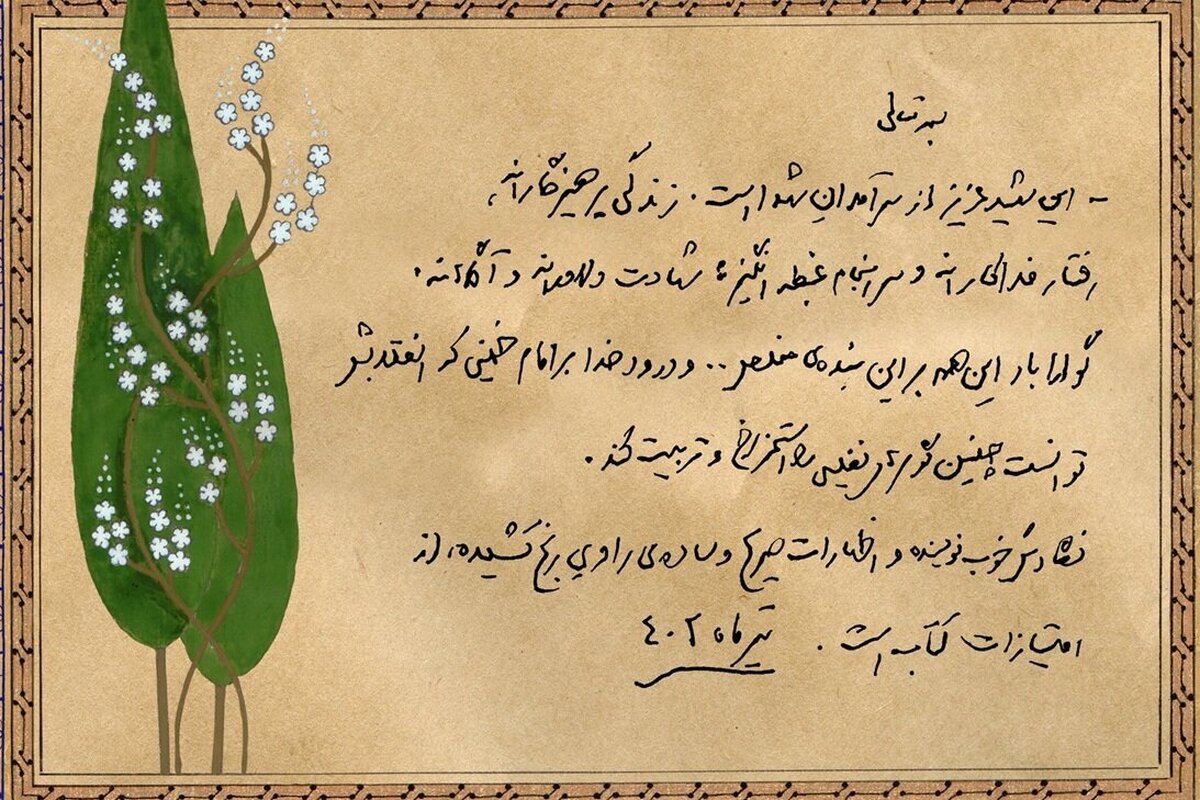 بسمه تعالی
- این شهید عزیز از سرآمدان شهدا است. زندگی پرهیزگارانه،
رفتار فداکارانه و سرانجام غبطه‌انگیز، شهادت دلاورانه و آگاهانه.
گوارا باد این همه بر این بنده‌ی مخلص .. و درود خدا بر امام خمینی که انقلابش
توانست چنین گوهرهای نفیسی را استخراج و تربیت کند.
نگارش خوب نویسنده و اظهارات صریح و ساده‌ی راوی رنج کشیده، از
امتیازات کتاب است. تیر ماه ۴۰۲